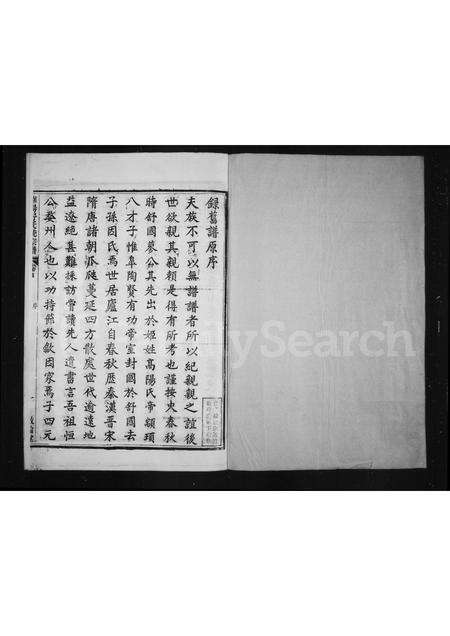 錄舊譜原序
夫族不可以無譜譜者所以紀親親之誼後
世欲親其親賴是得有所考也謹按史春秋
時舒國蓼公其先出於姬姓高陽氏帝顓頊
八才子惟皋陶賢有功帝室封國於舒國去
子孫因氏焉世居廬江自春秋歷秦漢晋宋
隋唐諸朝瓜瓞蔓延四方散處世代逾遠地
益遼絕甚難採訪嘗讀先人遺書言吾祖恒
公婺州人也以功持節於歙因家焉子四元
序
一
MySearch